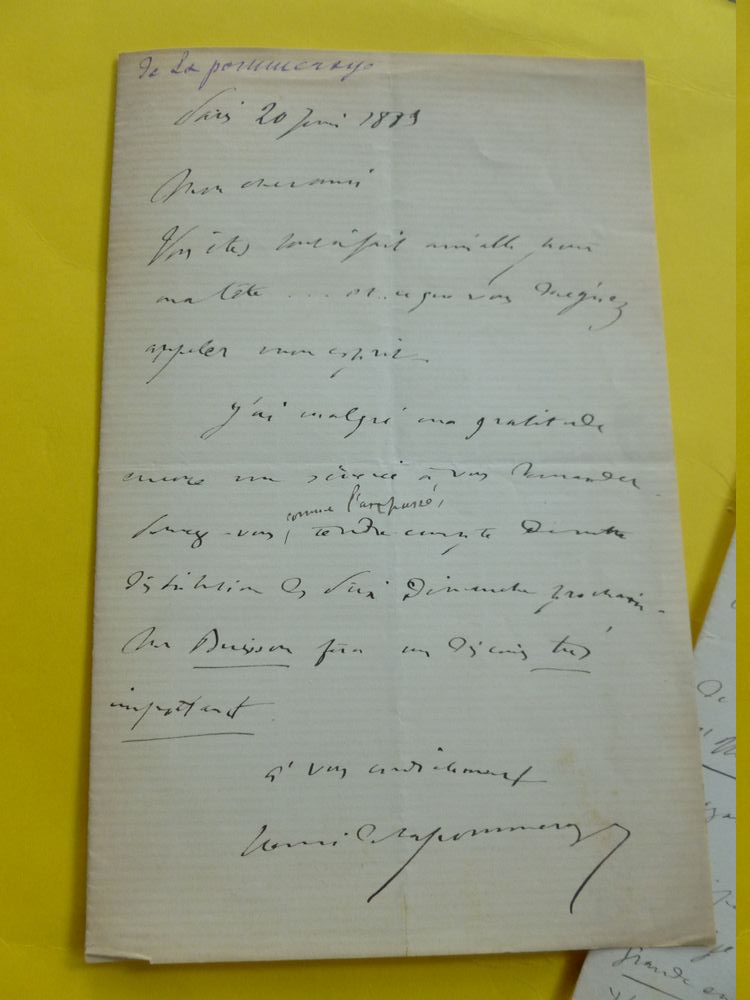 de La pommeraye
Paris 20 juin 1883
Mon cher ami
Vous êtes tout à fait aimable pour
ma tête ... et ce que vous daignez
appeler mon esprit.
J'ai malgré ma gratitude
encore un service à vous demander.
comme l'an passé,
Pouvez-vous, rendre compte de notre
distribution des Prix Dimanche prochain.
Mr Buisson fera un discours très
important
à vous cordialement
Henri de Lapommeraye
grande